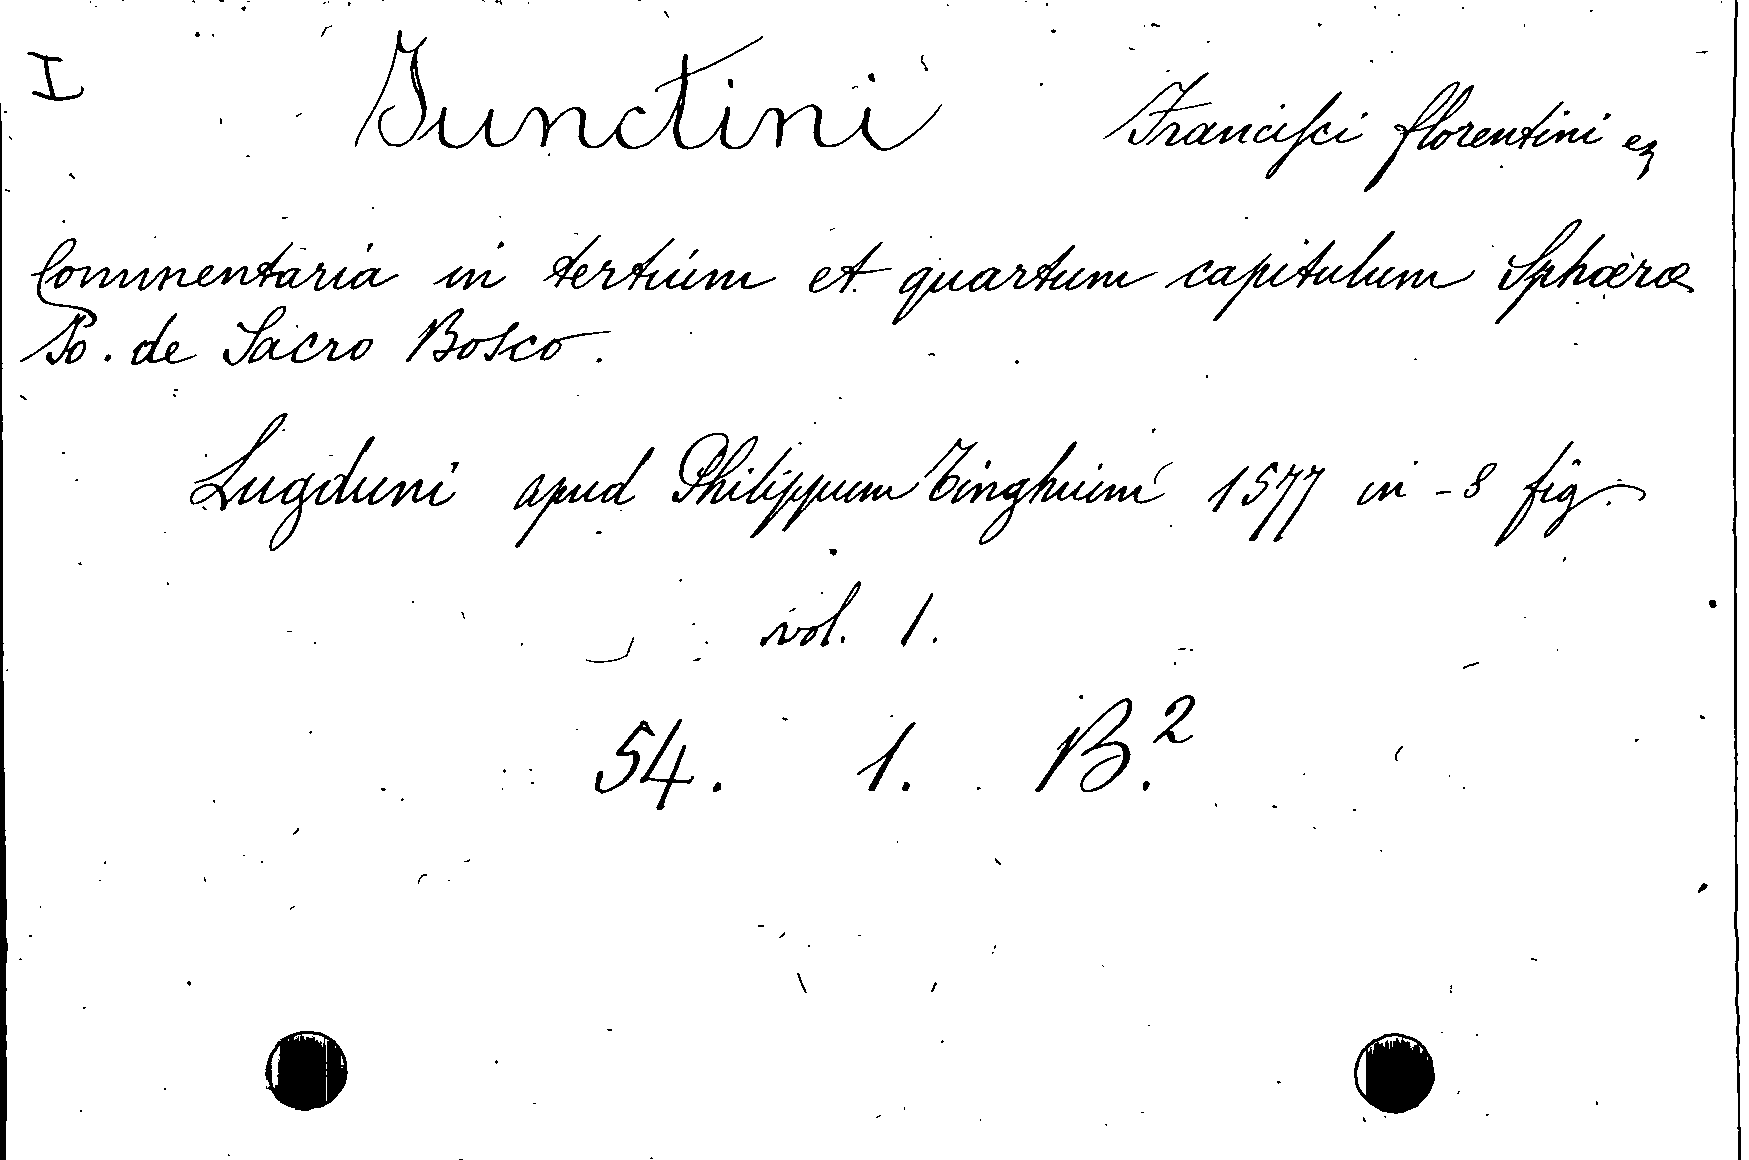 I Junctini Francisci florentini
Commentaria in tertium et quartum capitulum Sphæræ
Jo. de Sacro Bosco.
Lugduni apud Philippum Tinghium 1577 in-8 fig.
vol. 1.
54. 1. B.²